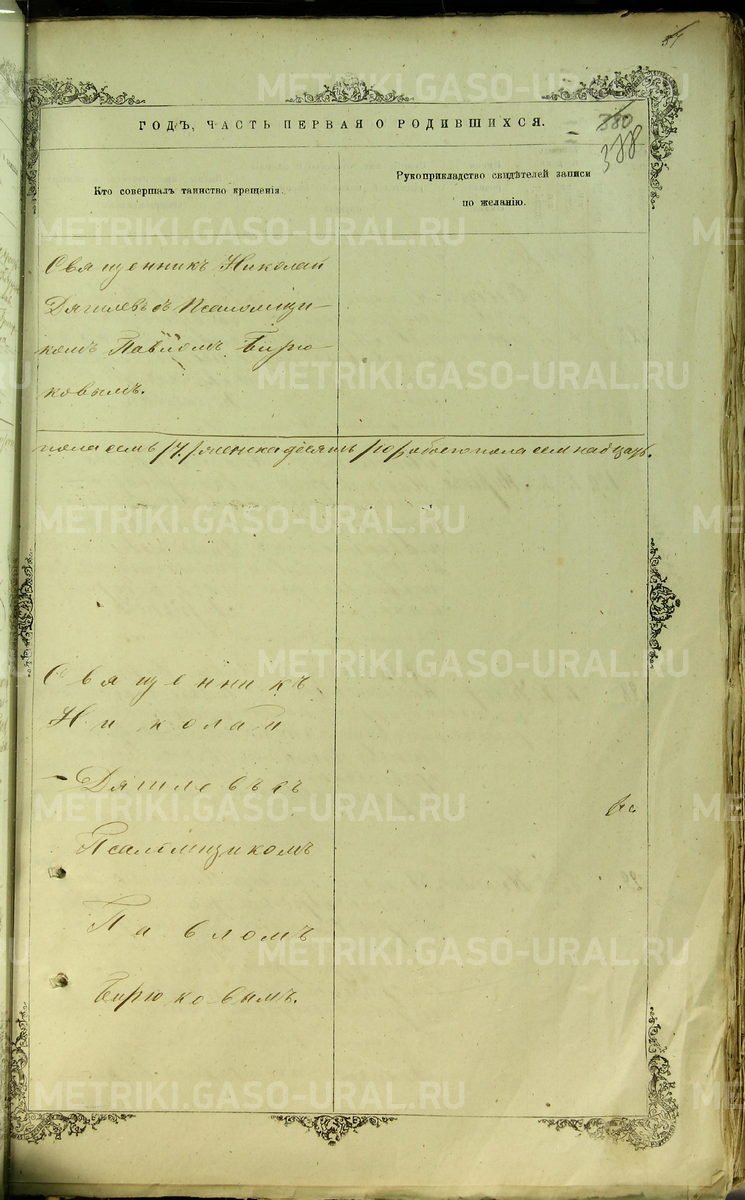 ГОДЪ, ЧАСТЬ ПЕРВАЯ О РОДИВШИХСЯ.
380
388
Кто совершалъ таинство крещенія.
Рукоприкладство свидѣтелей записи
по желанію.
Священникъ Николай
Дягилевъ съ Псаломщи-
комъ Павломъ Бирю-
ковымъ.
пола семь /7/, женска десять /10/, обоего пола семнадцать.
Священникъ
Николай
Дягилевъ съ
Псаломщикомъ
Павломъ
Бирюковымъ.
METRIKI.GASO-URAL.RU